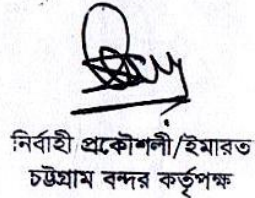 নির্বাহী প্রকৌশলী/ইমারত
চট্টগ্রাম বন্দর কর্তৃপক্ষ